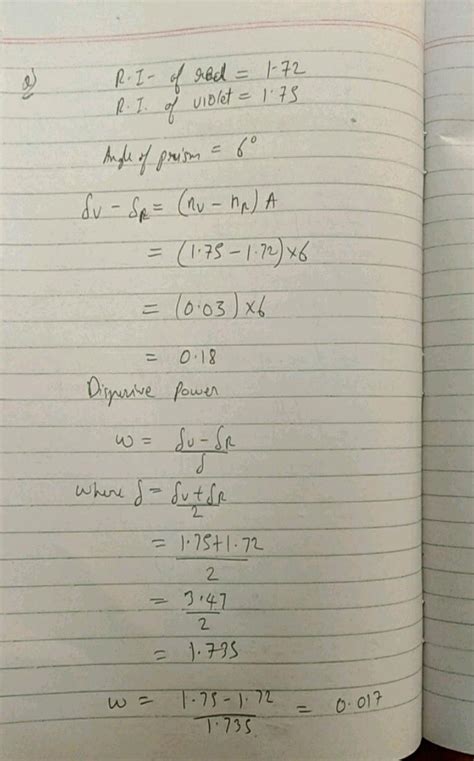 Q)
R.I- of red = 1.72
R.I. of violet = 1.75
Angle of prism = 6°
δv - δR = (nv - nR) A
= (1.75 - 1.72) × 6
= (0.03) × 6
= 0.18
Dispersive Power
w = δv - δR / δ
where δ = δv + δR / 2
= 1.75 + 1.72 / 2
= 3.47 / 2
= 1.735
w = 1.75 - 1.72 / 1.735 = 0.017